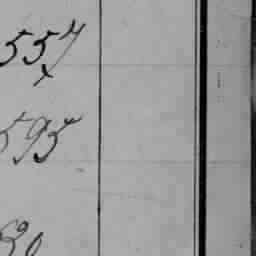 557
595